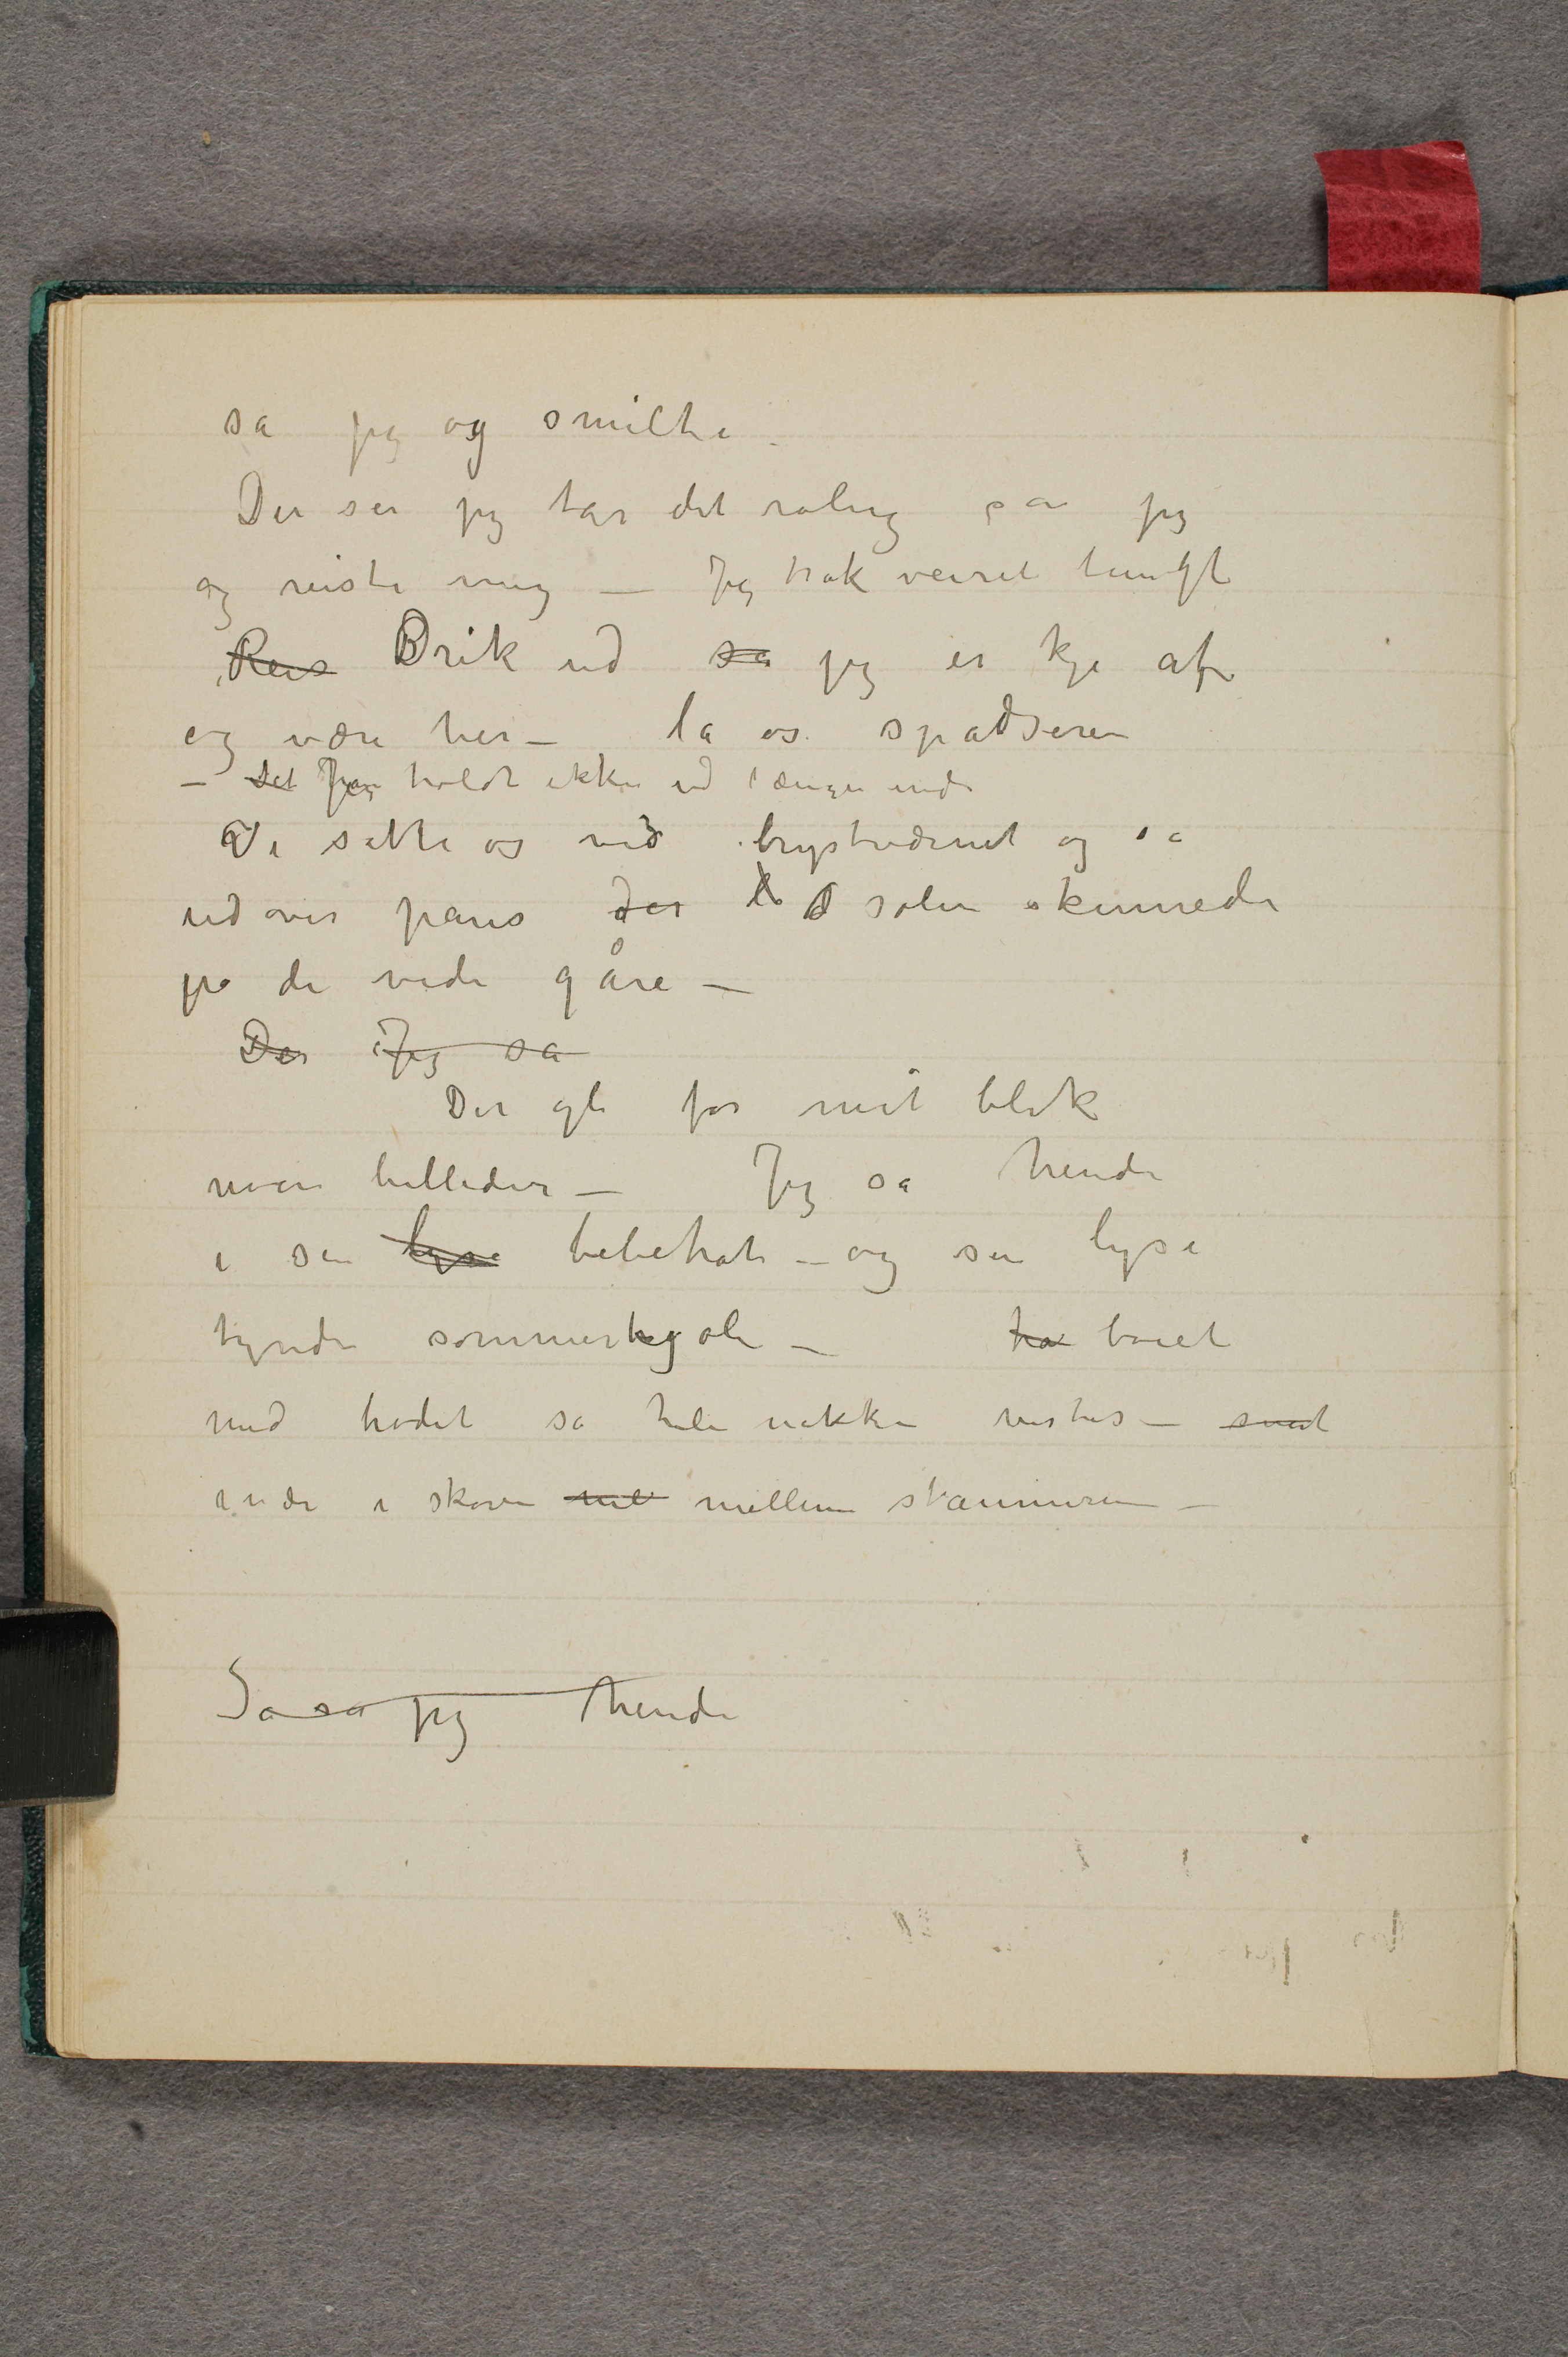 sa jeg og smilte.
De ser jeg tar det rolig sa jeg
og reiste mig – Jeg trak veiret tungt
Reis Drik ud sa jeg er kje af
og være her – la os spadsere
– Det Jeg holdt ikke ud længer inde
Vi satte os ved brystværnet og sa
ud over paris der solen skinnede
på de vide gåre –
Der Jeg sa
Der gle for mit blik
noen billeder – Jeg sa hende
i sin lyse bebehat – og sin lyse
tynde sommerkjole – ha boiet
med hodet så hele nakken vistes – svart
inde i skoven mel mellem stammerne –
Sa sa jeg hende